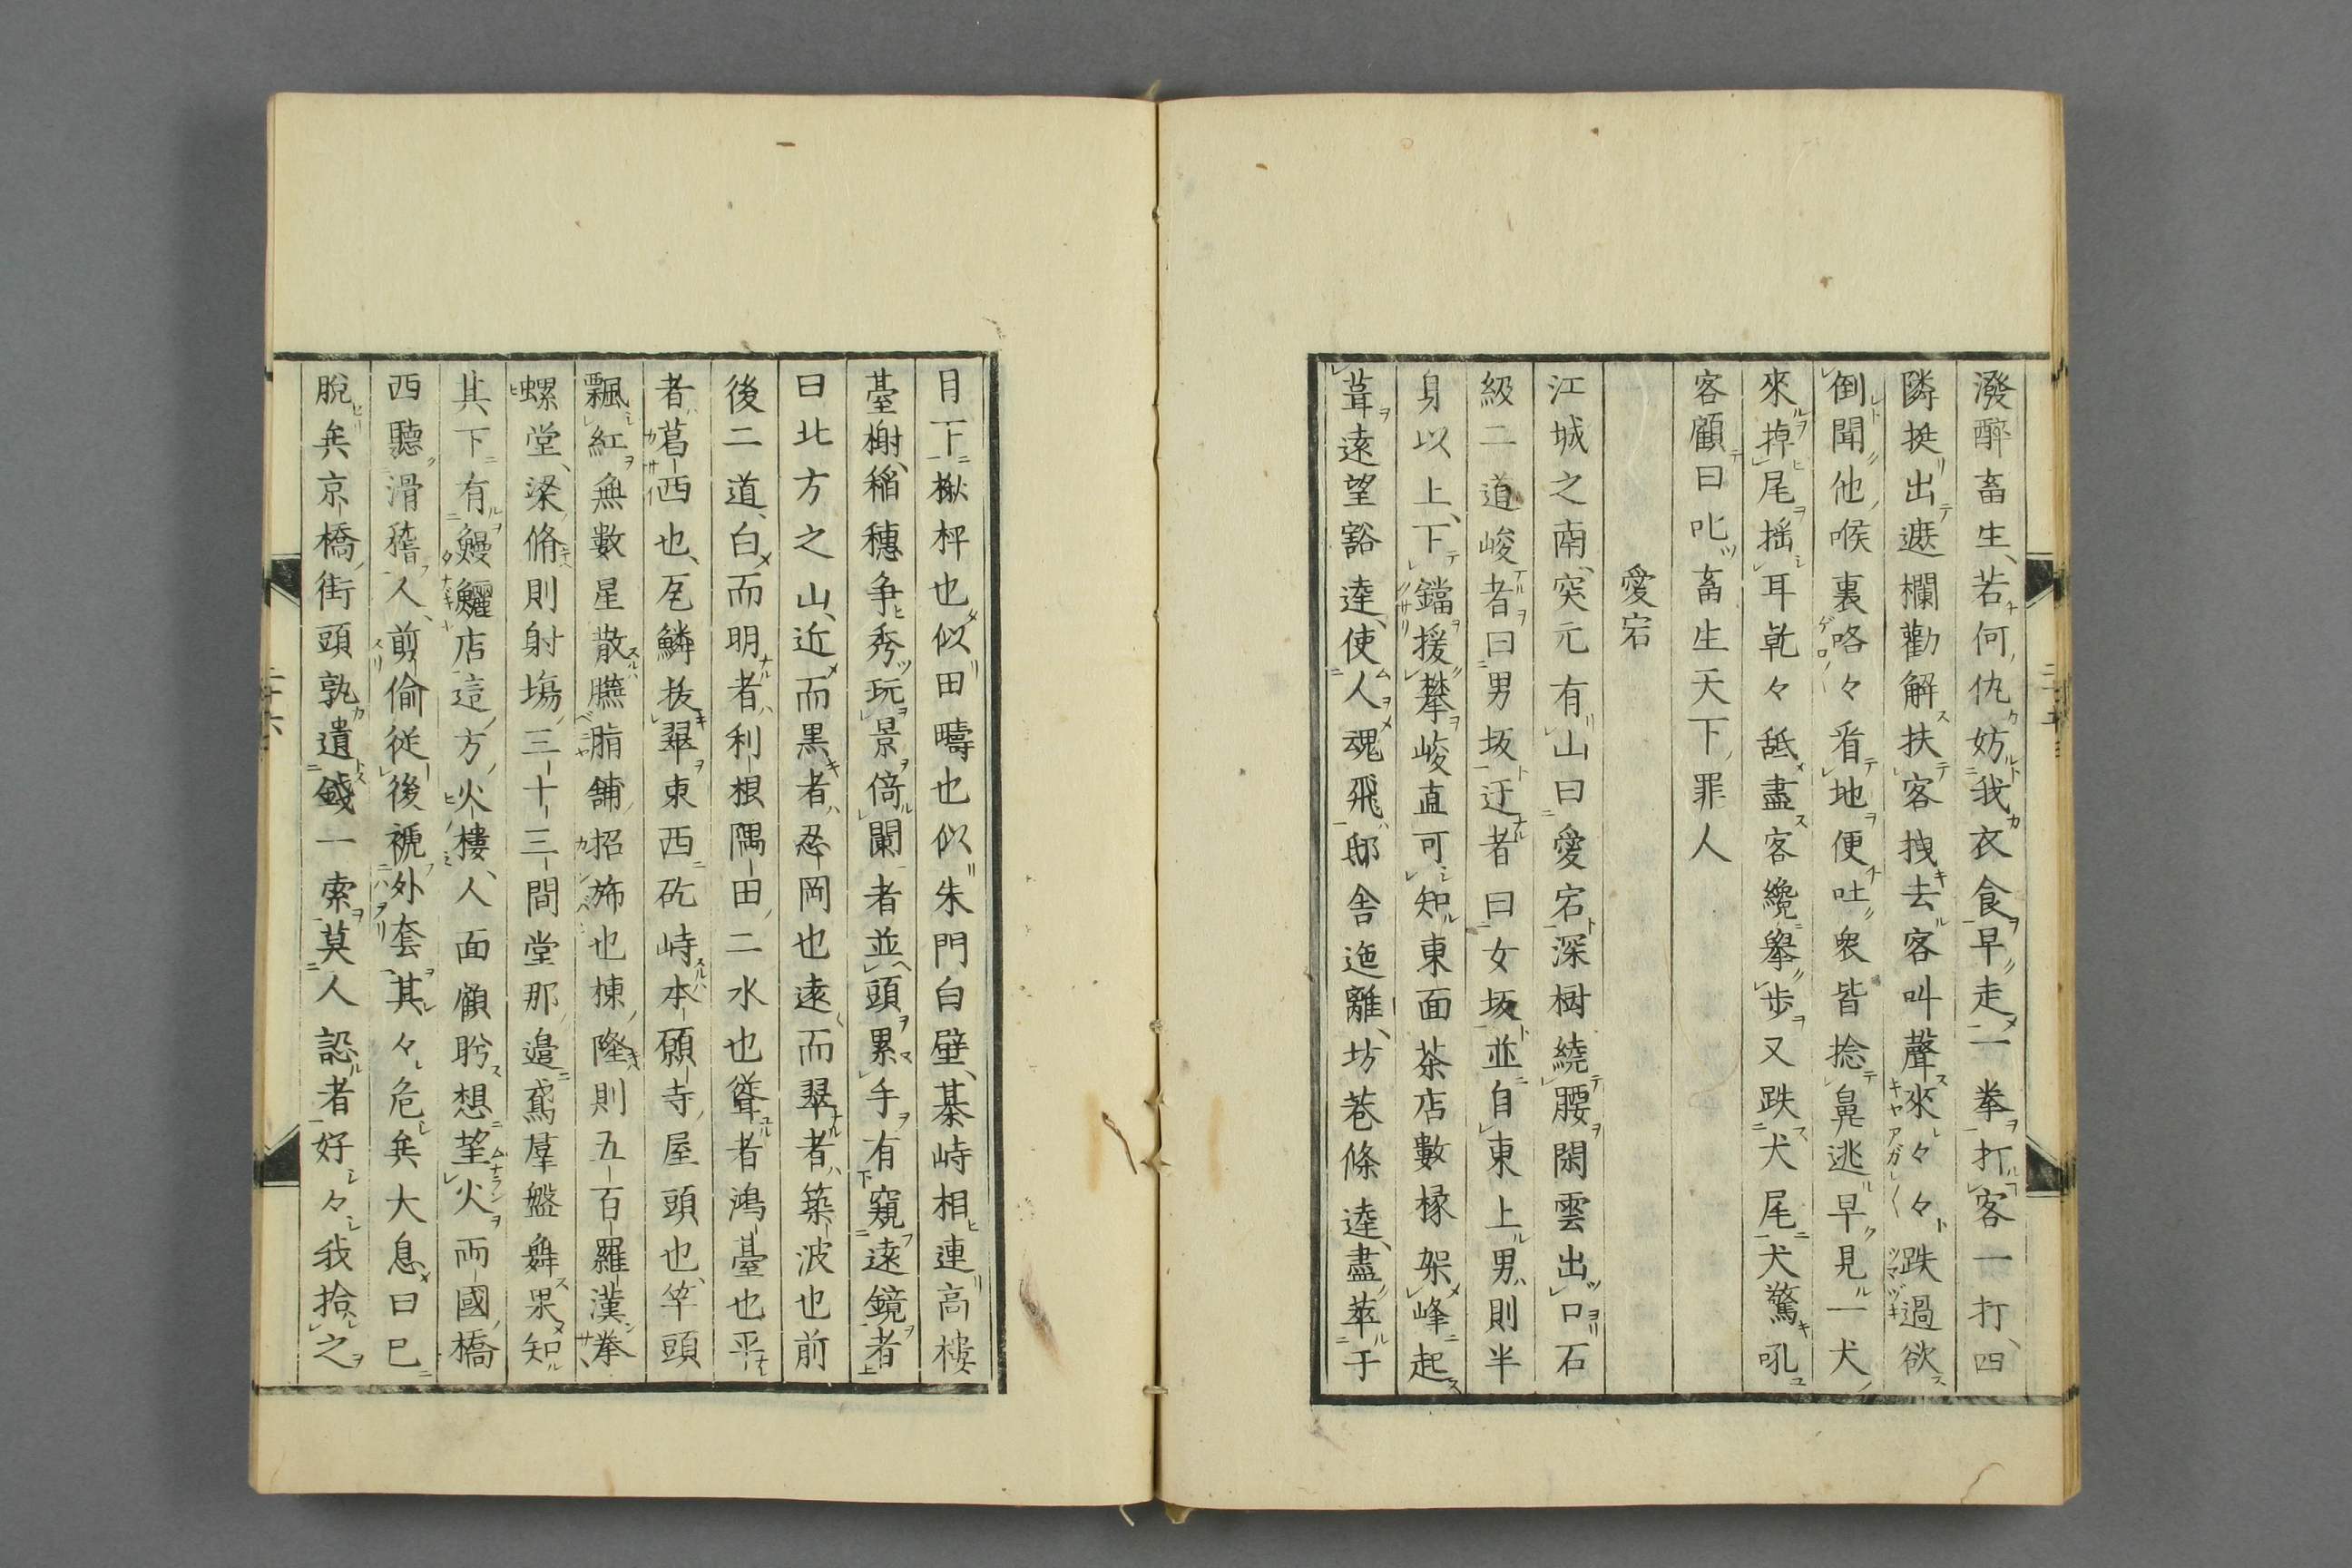 潑醉畜生若何仇妨我衣食早走一拳打客一打四
隣挺出遮欄勸解扶客拽去客叫聲來々々跌過欲
倒聞他喉裏咯々看地便吐衆皆捻鼻逃早見一犬
來掉尾揺耳乾々舐盡客纔擧歩又跌犬尾犬驚吼
客顧曰叱畜生天下罪人
愛宕
江城之南突元有山曰愛宕深樹繞腰閑雲出口石
級二道峻者曰男坂迂者曰女坂並自東上男則半
身以上下鐺援攀峻直可知東面茶店數椽架峰起
葺遠望豁達使人魂飛邸舎迤離坊巷條達盡萃于
目下楸枰也似田疇也似朱門白壁棊峙相連高樓
臺榭稲穗争秀玩景倚闌者並頭累手有窺遠鏡者
曰北方之山近而黒者忍岡也遠而翠者築波也前
後二道白而明者利根隅田二水也聳者鴻臺也平
者葛西也瓦鱗抜翠東西矻峙本願寺屋頭也竿頭
飄紅無數星散臙脂舗招斾也棟隆則五百羅漢拳
螺堂梁脩則射塲三十三間堂那邉鳶羣盤舞果知
其下有鰻鱺店這方火樓人面顧盻想望火兩國橋
西聽滑稽人剪偷従後褫外套其々危矣大息曰已
脱矣京橋街頭孰遺錢一索莫人認者好々我拾之
二十六